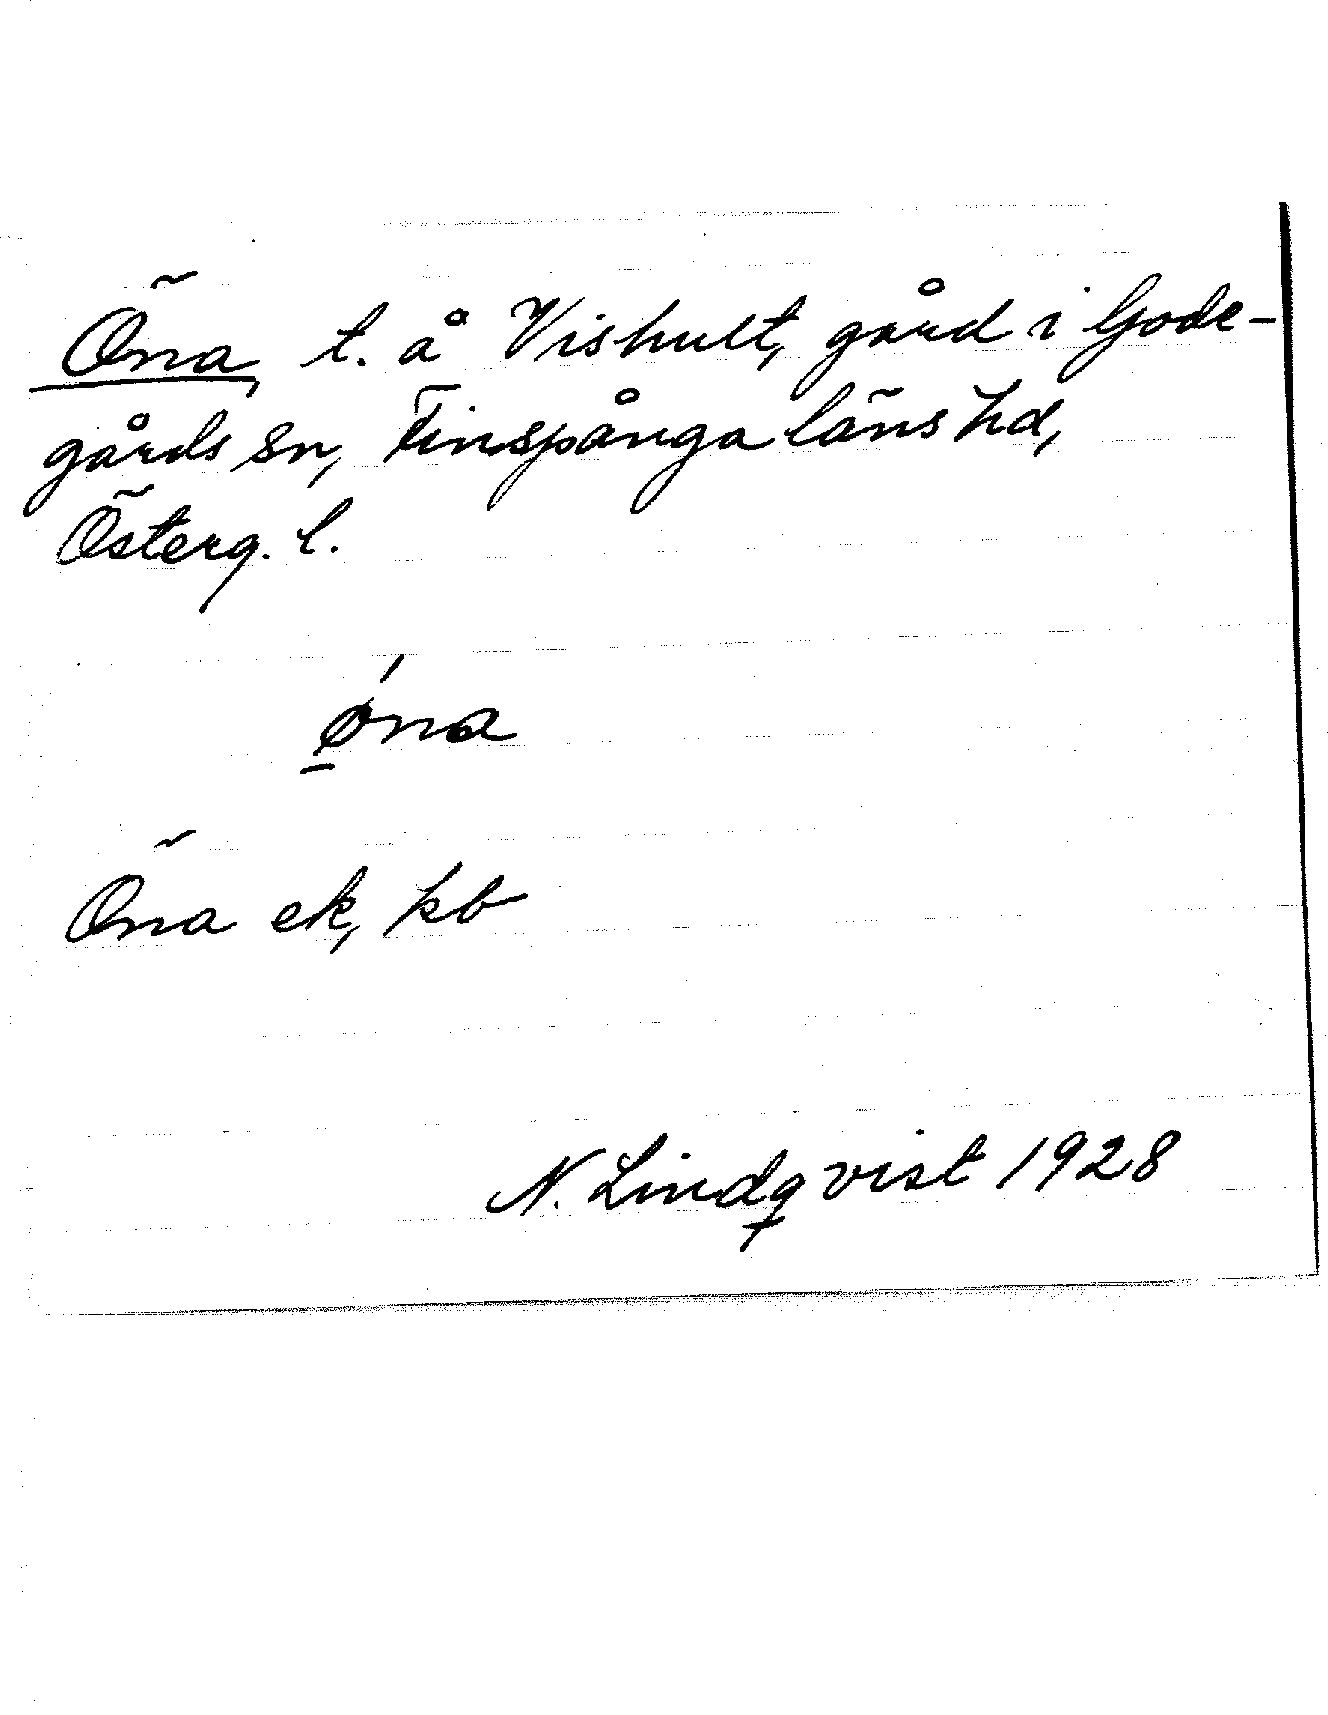 Öna, t. å Vishult, gård i Gode-
gårds sn, Finspånga läns hd,
Österg. l.
ǿ̱na
Öna ek, kb
N. Lindqvist 1928